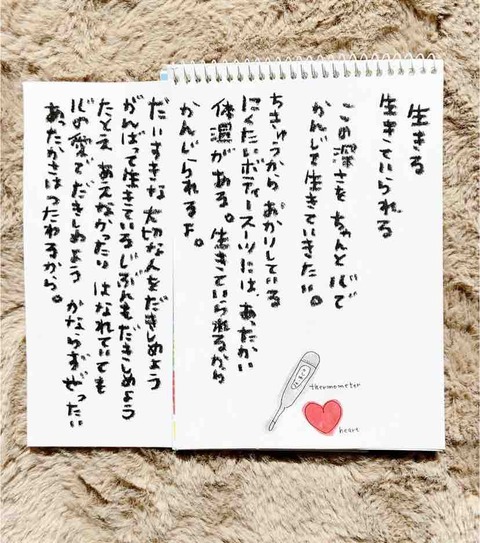 生きる
生きていられる
この深さを ちゃんと 心で
かんじて 生きていきたい。
ちきゅうから おかりしている
にくたいボディースーツには、あったかい
体温がある。生きていられるから
かんじられるよ。
だいすきな 大切な人を だきしめよう
がんばって生きている じぶんも だきしめよう
たとえ あえなかったり はなれていても
心の愛で だきしめよう かならず ぜったい
あったかさは つたわるから。
thermometer
heart